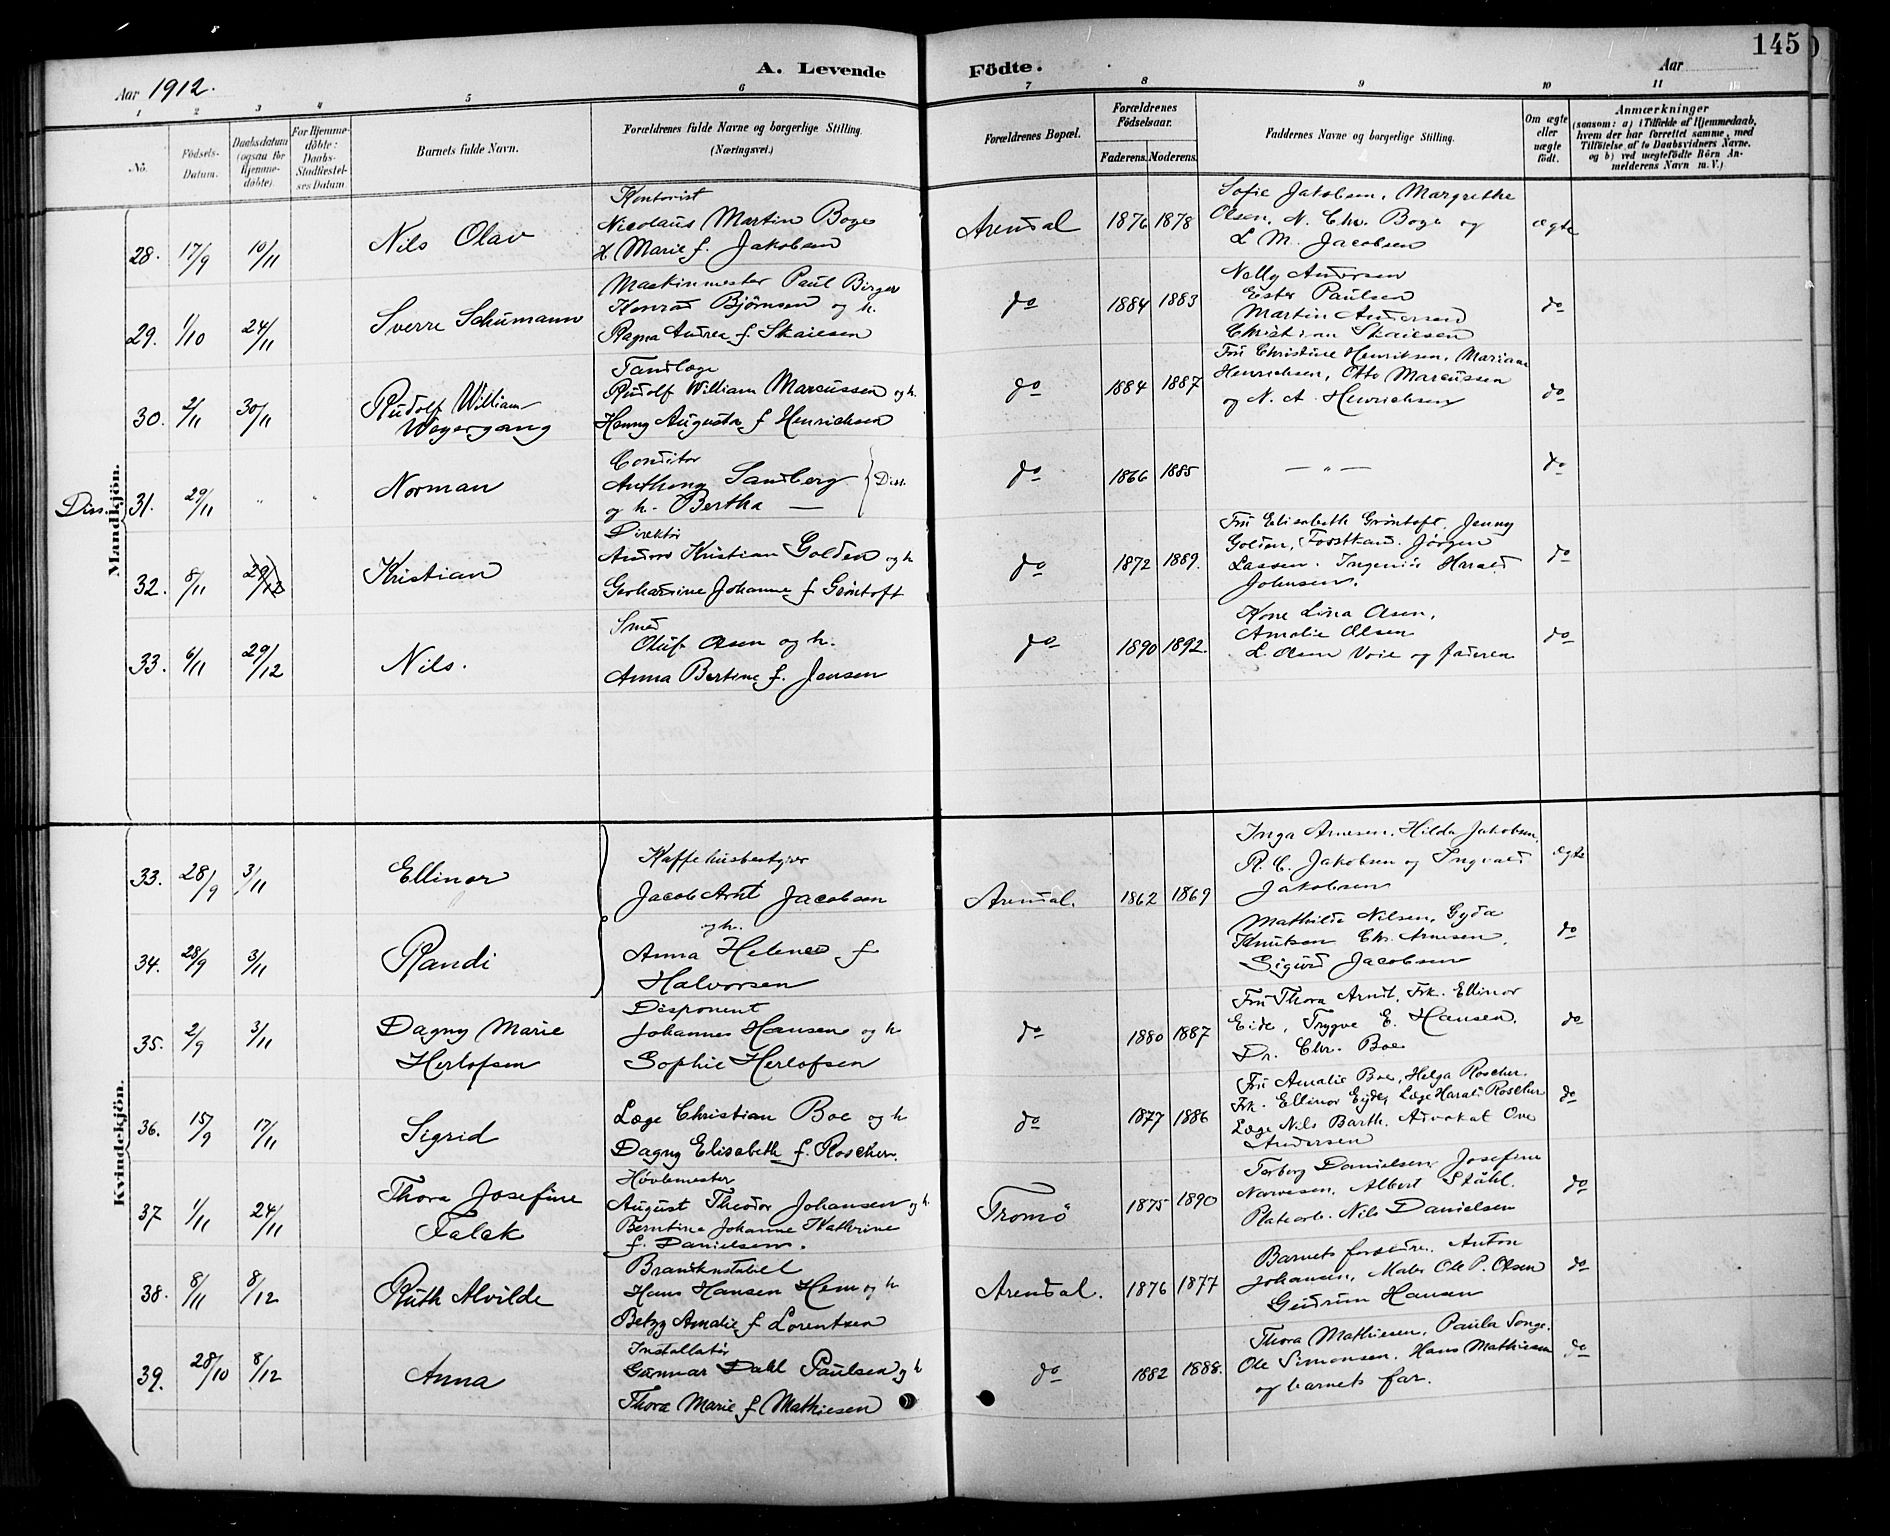 145
Aar 1912.
A. Levende Födte.
Aar
1 2 3 4 5 6 7 8 9 10 11
No.
Födsels-Datum.
Daabsdatum (ogsaa for Hjemmedöbte).
For Hjemmedöbte: Daabs-Stadfæstelses Datum.
Barnets fulde Navn.
Forældrenes fulde Navne og borgerlige Stilling. (Næringsvei.)
Forældrenes Bopæl.
Forældrenes Födselsaar.
Faderens. Moderens.
Faddernes Navne og borgerlige Stilling.
Om ægte eller uægte födt.
Anmærkninger
(saasom: a) i Tilfælde af Hjemmedaab, hvem der har forrettet samme, med Tilföielse af to Daabsvidners Navne, og b) ved uegtefödte Börn Anmelderens Navn m. V.)
Mandkjön.
28. 17/9 10/11 Nils Olav
Kontorist
Nicolaus Martin Boge
& Marie f. Jakobsen
Arendal 1876 1878
Sofie Jakobsen, Margrethe
Olsen, N. Chr. Boge og
L. M. Jacobsen
ægte
29. 1/10 24/11 Sverre Schumann
Maskinmester Paul Birger
Konrad Bjørnsen og h.
Ragna Andrea f. Skaiesen
do 1884 1883
Nelly Andersen
Ester Paulsen
Martin Andersen
Christian Skaiesen
do
30. 2/11 30/11 Rudolf William
Weyergang
Tandlæge
Rudolf William Marcussen og h.
Hanny Augusta f Henrichsen
do 1884 1887
Fru Christine Henriksen, Mariane
Henrichsen, Otto Marcussen
og N. A. Henrichsen
do
Diss. 31. 29/11 " " Norman
Conditor
Anthony Sandberg
og h. Bertha —
Diss.
do 1866 1885 — " — do
32. 8/11 29/12 Kristian
Direktør
Anders Kristian Golden og h
Gerhardine Johanne f Grøntoft
do 1872 1889.
Fru Elisabeth Grøntoft, Jenny
Golden, Forstkand. Jørgen
Lassen. Ingeniør Harald
Johnsen.
do
33. 6/11 29/12 Nils.
Smed
Oluf Olsen og h.
Anna Bertine f. Jensen
do 1890 1892.
Kone Lina Olsen,
Amalie Olsen
L. Olsen Voie og faderen
do
Kvindekjön.
33. 28/9 3/11 Ellinor
Kaffehusbestyrer
Jacob Arnt Jacobsen
og h.
Anna Helene f
Halvorsen
Arendal. 1862 1869
Inga Arnesen, Hilda Jakobsen,
R. C. Jakobsen og Ingvald
Jakobsen
ægte
34. 28/9 3/11 Randi
Mathilde Nilsen, Gyda
Knutsen Chr. Arnesen,
Sigurd Jacobsen
do
35. 2/9 3/11 Dagny Marie
Herlofsen
Disponent
Johannes Hansen og h
Sophie Herlofsen
do 1880 1887
Fru Thora Arndt, Frk. Ellinor
Eide, Trygve E. Hansen,
Dr. Chr. Boe
do
36. 15/9 17/11 Sigrid
Læge Christian Boe og h
Dagny Elisabeth f. Roscher.
do 1877 1886
Fru Amalie Boe, Helga Roscher.
Frk. Ellinor Eyde, Læge Harald Roscher
Læge Nils Barth. Advokat Ove
Andersen
do
37 1/11 24/11 Thora Josefine
Falck
Høvlemester
August Theodor Johansen og h.
Berntine Johanne Kathrine
f. Danielsen.
Tromö 1875 1890
Torborg Danielsen, Josefine
Narvesen, Albert Ståhl.
Platearb. Nils Danielsen
do
38. 8/11 8/12 Ruth Alvilde
Brandkonstabel
Hans Hansen Hem og h
Betzy Amalie f Lorentzen
Arendal. 1876 1877
Barnets forældre. Anton
Johansen, Maler Ole P. Olsen
Gudrun Hansen
do
39. 28/10 8/12 Anna
Installatør
Gunnar Dahl Paulsen og h
Thora Marie f Mathiesen
do 1882 1888.
Thora Mathiesen, Paula Songe.
Ole Simonsen. Hans Mathiesen
og barnets far.
do